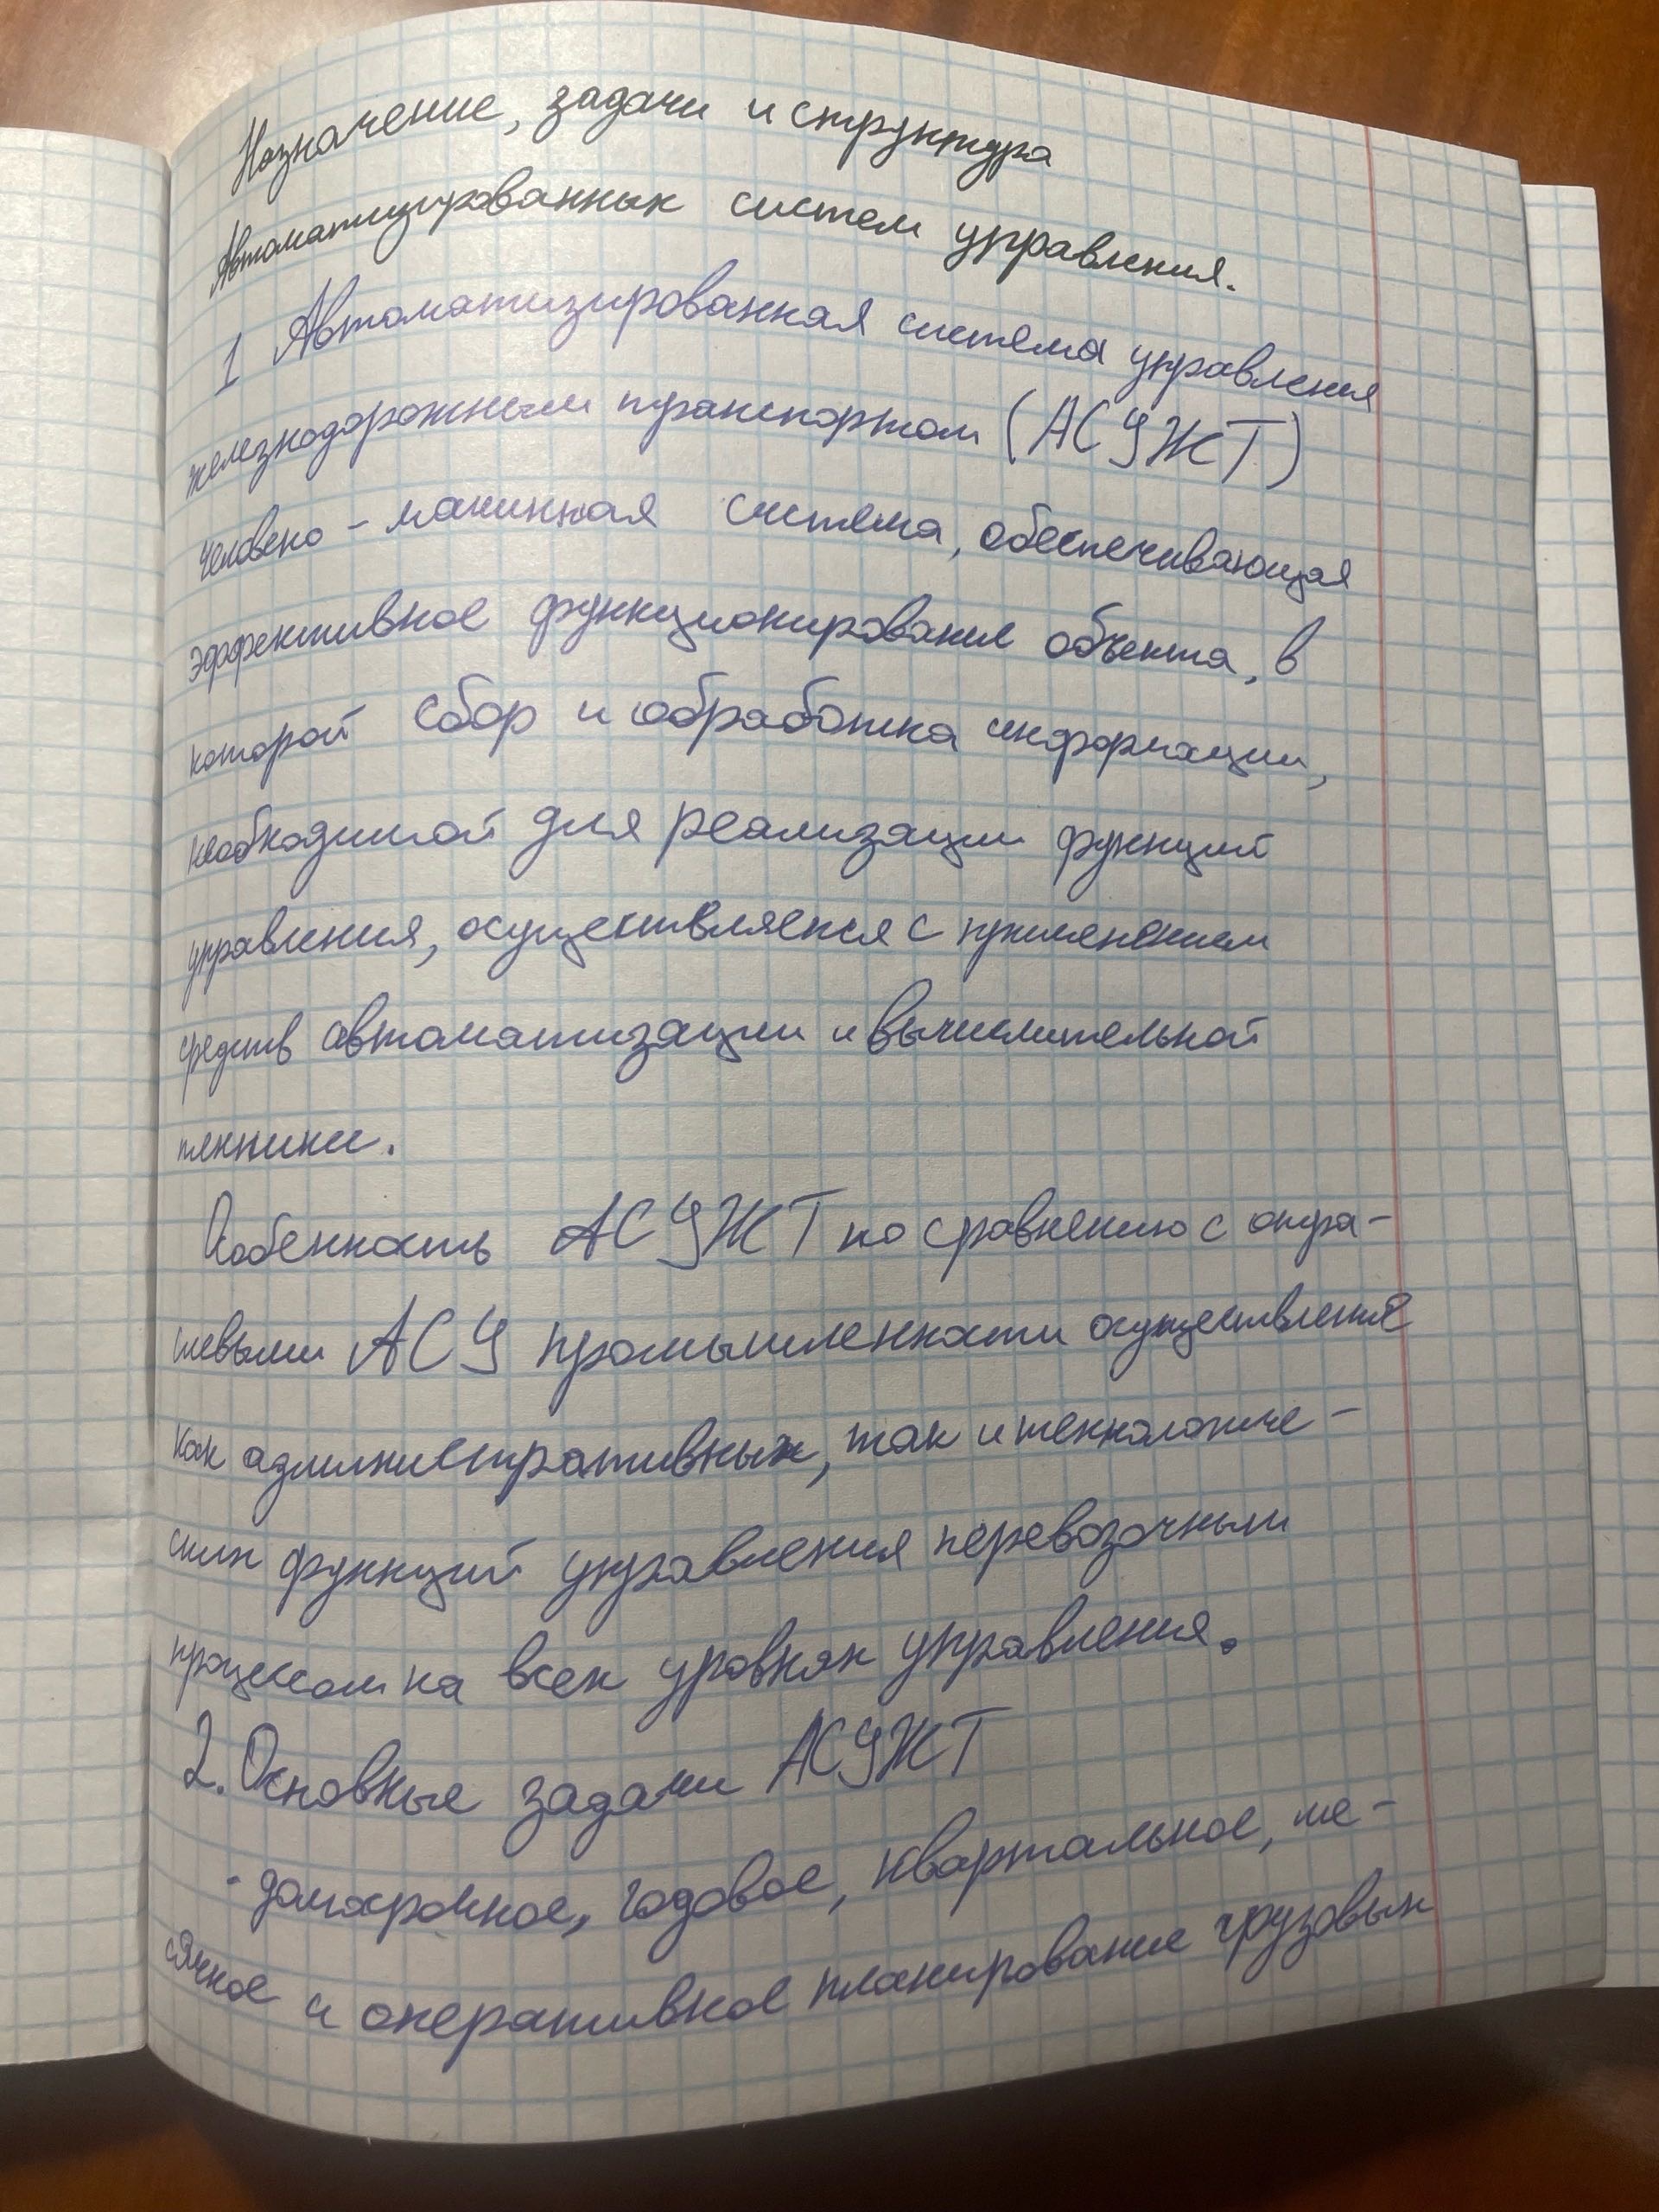 Назначение, задачи и структура
Автоматизированных систем управления.
1 Автоматизированная система управления
железнодорожным транспортом (АСУЖТ)
человеко - машинная система, обеспечивающая
эффективное функционирование объекта, в
которой сбор и обработка информации,
необходимой для реализации функций
управления, осуществляется с применением
средств автоматизации и вычислительной
техники.
Особенность АСУЖТ по сравнению с отра-
слевыми АСУ промышленности осуществление
как административных, так и технологиче-
ских функций управления перевозочным
процессом на всех уровнях управления.
2. Основные задачи АСУЖТ
- долгосрочное, годовое, квартальное, ме-
сячное и оперативное планирование грузовых